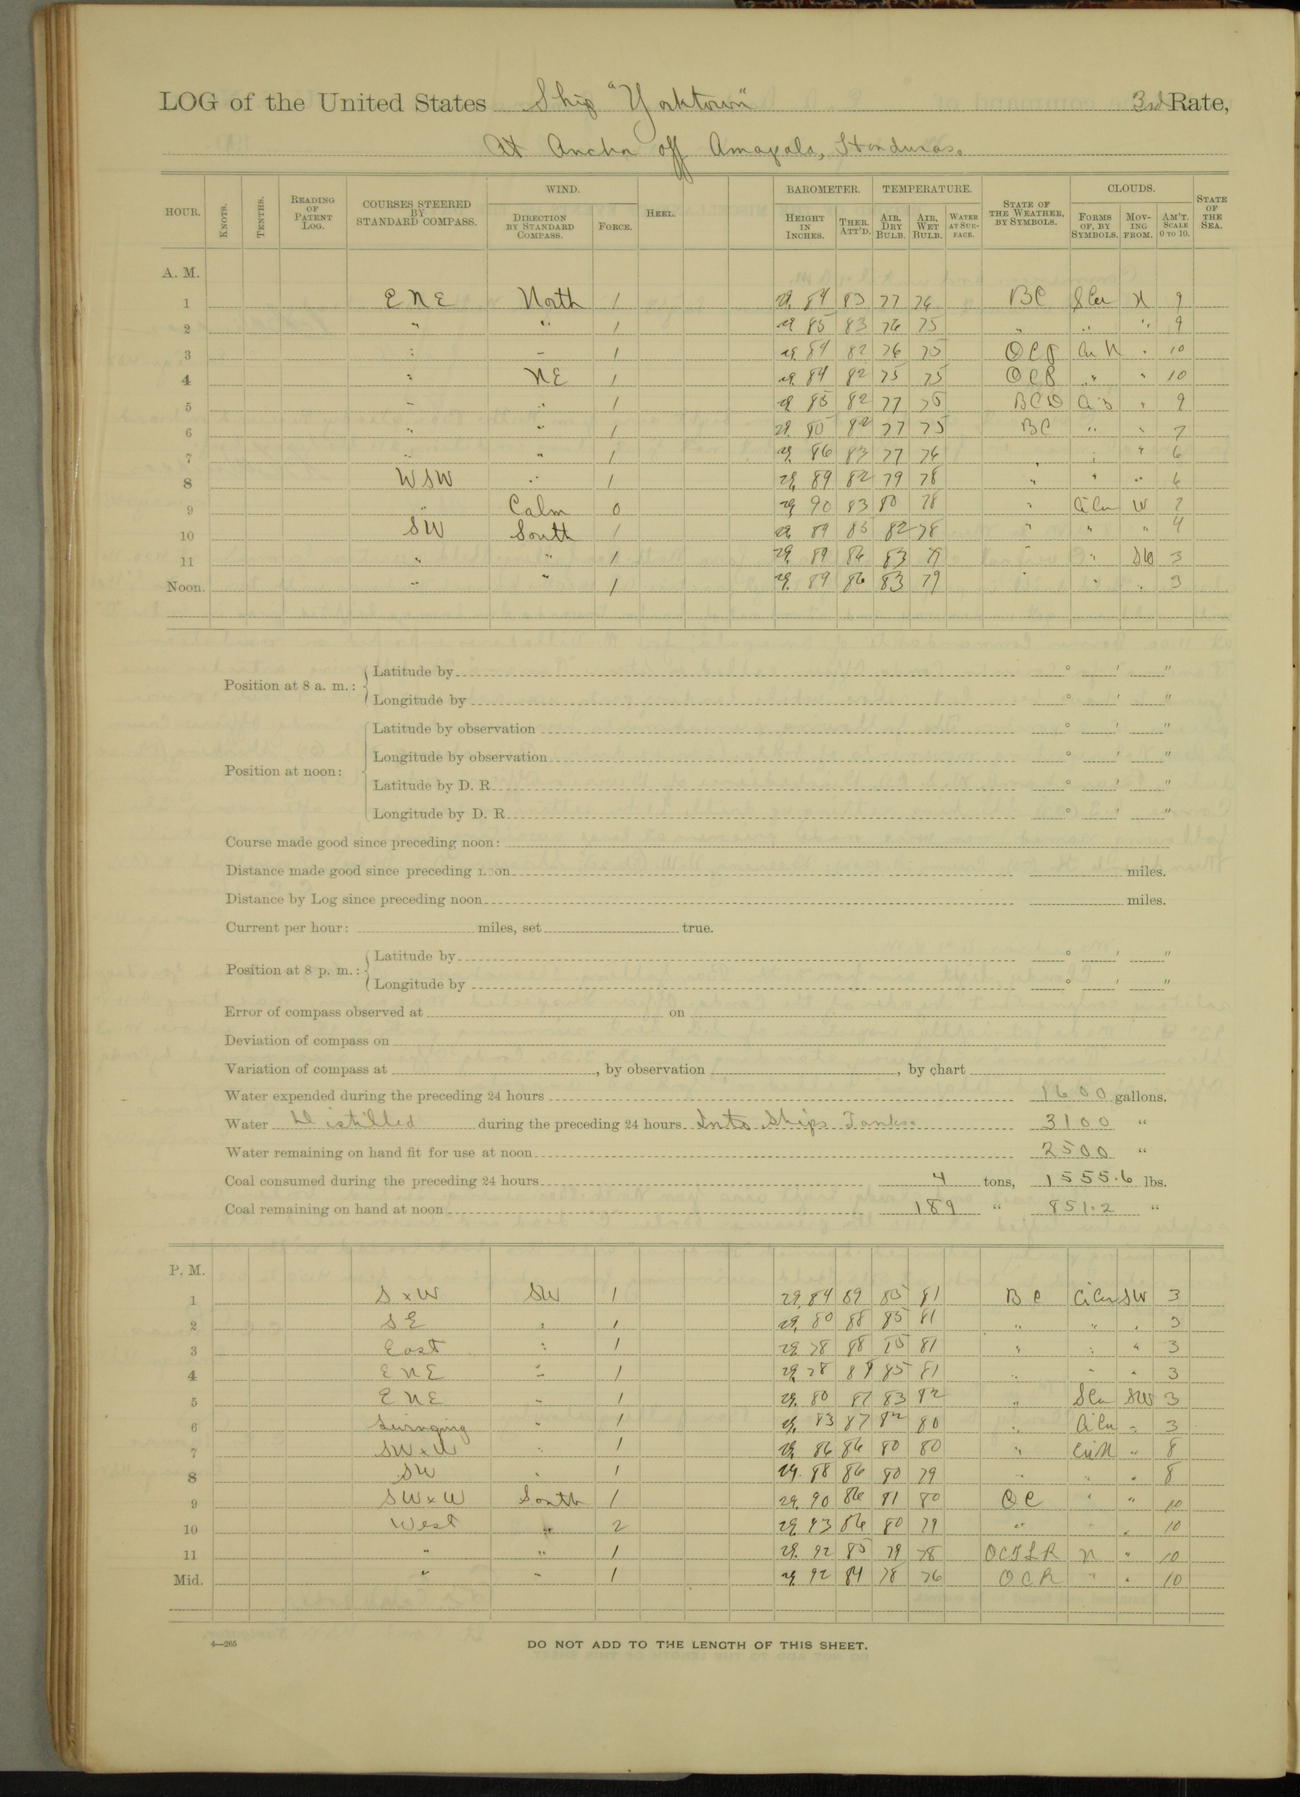 LOG of the United States Ship "Yorktown" 3rd Rate,
At Anchor off Amapala, Honduras.
HOUR. KNOTS. TENTHS. READING OF PATENT LOG. COURSES STEERED BY STANDARD COMPASS. WIND. DIRECTION BY STANDARD COMPASS. FORCE. HEEL. BAROMETER. HEIGHT IN INCHES. THER. ATT'D. TEMPERATURE. AIR, DRY BULB. AIR, WET BULB. WATER AT SURFACE. STATE OF THE WEATHER, BY SYMBOLS. CLOUDS. FORMS OF, BY SYMBOLS. MOVING FROM. AM'T. SCALE 0 TO 10. STATE OF THE SEA.
A. M.
1 ENE North 1 29. 84 83 77 76 BC S Cu N 9
2 " " 1 29 85 83 76 75 " " " 9
3 " " 1 29. 84 82 76 75 Cu N " 10
4 " NE 1 29. 84 82 75 75 " " 10
5 " " 1 29. 85 82 77 75 " 9
6 " " 1 29. 85 82 77 75 BC " " 7
7 " " 1 29. 86 83 77 76 " " " 6
8 WSW " 1 29. 89 82 79 78 " " " 6
9 " Calm 0 29. 90 83 80 78 " Ci Cu W
10 SW South 1 29. 89 85 82 78 " " " 4
11 " " 1 29. 89 86 83 79 " " SW 3
Noon. " " 1 29. 89 86 83 79 " " " 3
Position at 8 a. m.: Latitude by ° ' "
Longitude by ° ' "
Position at noon: Latitude by observation ° ' "
Longitude by observation ° ' "
Latitude by D. R. ° ' "
Longitude by D. R. ° ' "
Course made good since preceding noon:
Distance made good since preceding noon miles.
Distance by Log since preceding noon miles.
Current per hour: miles, set true.
Position at 8 p. m.: Latitude by ° ' "
Longitude by ° ' "
Error of compass observed at on
Deviation of compass on
Variation of compass at , by observation , by chart
Water expended during the preceding 24 hours 1600 gallons.
Water Distilled during the preceding 24 hours Into Ships Tanks. 3100 "
Water remaining on hand fit for use at noon 2500 "
Coal consumed during the preceding 24 hours 4 tons, 1555.6 lbs.
Coal remaining on hand at noon 189 " 851.2 "
P. M.
1 S x W SW 1 29. 84 89 85 81 BC Ci Cu SW 3
2 SE " 1 29. 80 88 85 81 " " " 3
3 East " 1 29. 78 88 85 81 " " " 3
4 ENE " 1 29. 78 89 85 81 " " " 3
5 ENE " 1 29. 80 87 83 82 " S Cu SW 3
6 Swinging " 1 29. 83 87 82 80 " Ci Cu " 3
7 SW x W " 1 29. 86 86 80 80 " " 8
8 SW " 1 29. 88 86 80 79 " " " 8
9 SW x W South 1 29. 90 86 81 80 OC " " 10
10 West " 2 29. 93 86 80 79 " " " 10
11 " " 1 29. 92 85 79 78 OCTLR N " 10
Mid. " " 1 29. 92 84 78 76 OCR " " 10
4—265
DO NOT ADD TO THE LENGTH OF THIS SHEET.